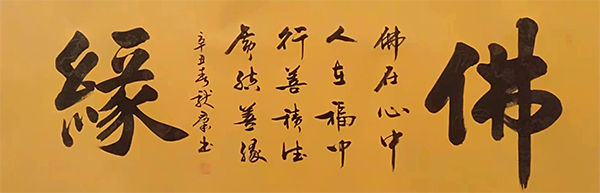 佛
佛在心中
人在福中
行善積德
常結善緣
辛丑春康书
緣